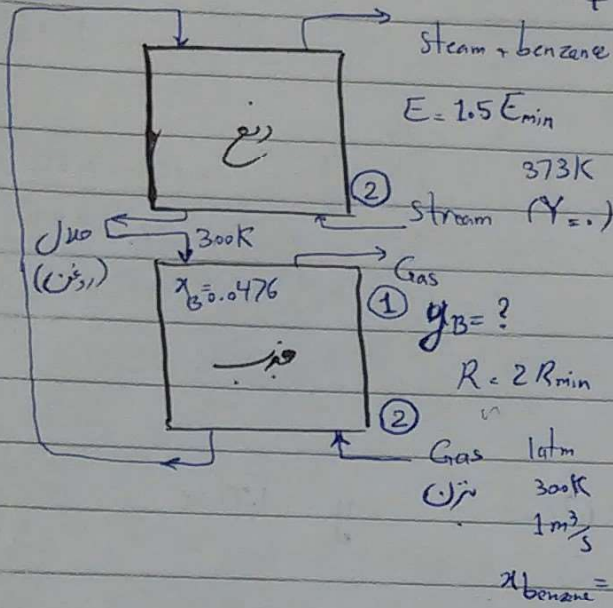 Steam + benzene
E = 1.5 Emin
دفع
373K
②
Stream (Y=0)
حلال
(روغن)
300K
Gas
xB=0.0476
①
yB = ?
جذب
R = 2 Rmin
②
Gas 1atm
بنزن 300K
1 m³/s
xbenzene =